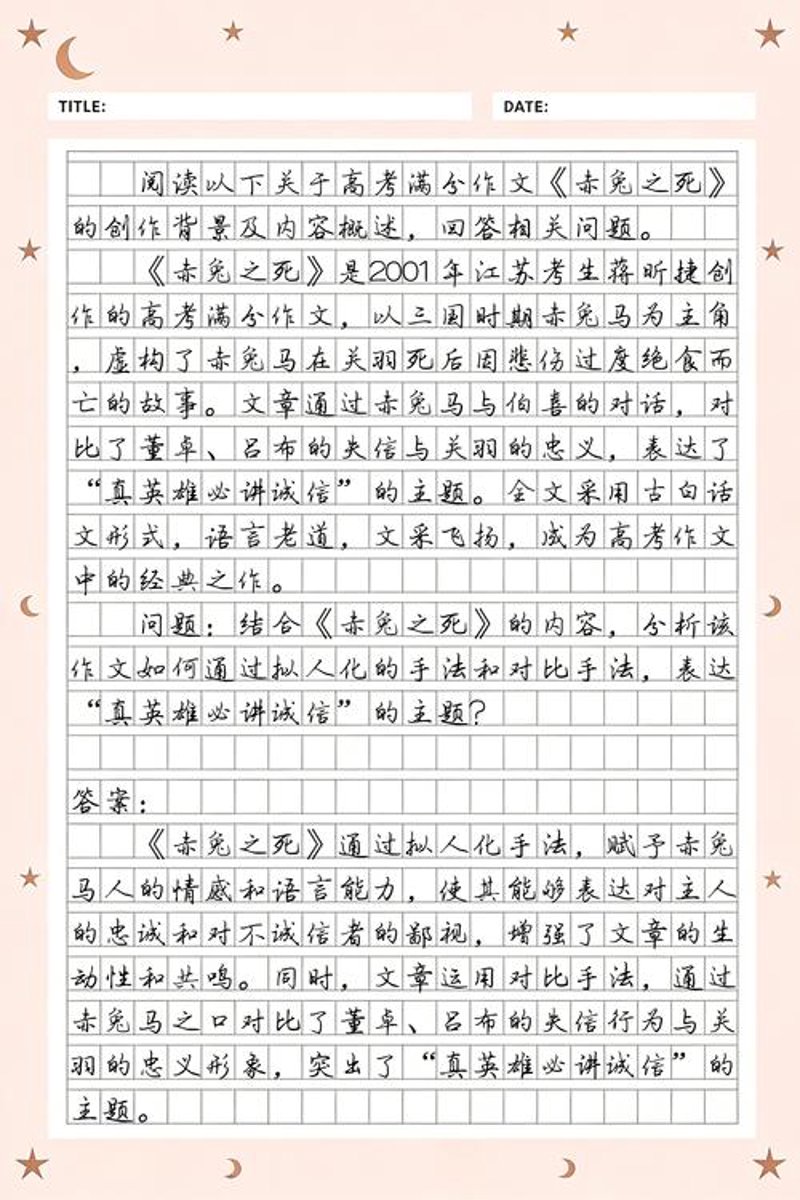 TITLE:
DATE:
阅读以下关于高考满分作文《赤兔之死》
的创作背景及内容概述，回答相关问题。
《赤兔之死》是2001年江苏考生蒋昕捷创
作的高考满分作文，以三国时期赤兔马为主角
，虚构了赤兔马在关羽死后因悲伤过度绝食而
亡的故事。文章通过赤兔马与伯喜的对话，对
比了董卓、吕布的失信与关羽的忠义，表达了
“真英雄必讲诚信”的主题。全文采用古白话
文形式，语言老道，文采飞扬，成为高考作文
中的经典之作。
问题：结合《赤兔之死》的内容，分析该
作文如何通过拟人化的手法和对比手法，表达
“真英雄必讲诚信”的主题？
答案：
《赤兔之死》通过拟人化手法，赋予赤兔
马人的情感和语言能力，使其能够表达对主人
的忠诚和对不诚信者的鄙视，增强了文章的生
动性和共鸣。同时，文章运用对比手法，通过
赤兔马之口对比了董卓、吕布的失信行为与关
羽的忠义形象，突出了“真英雄必讲诚信”的
主题。